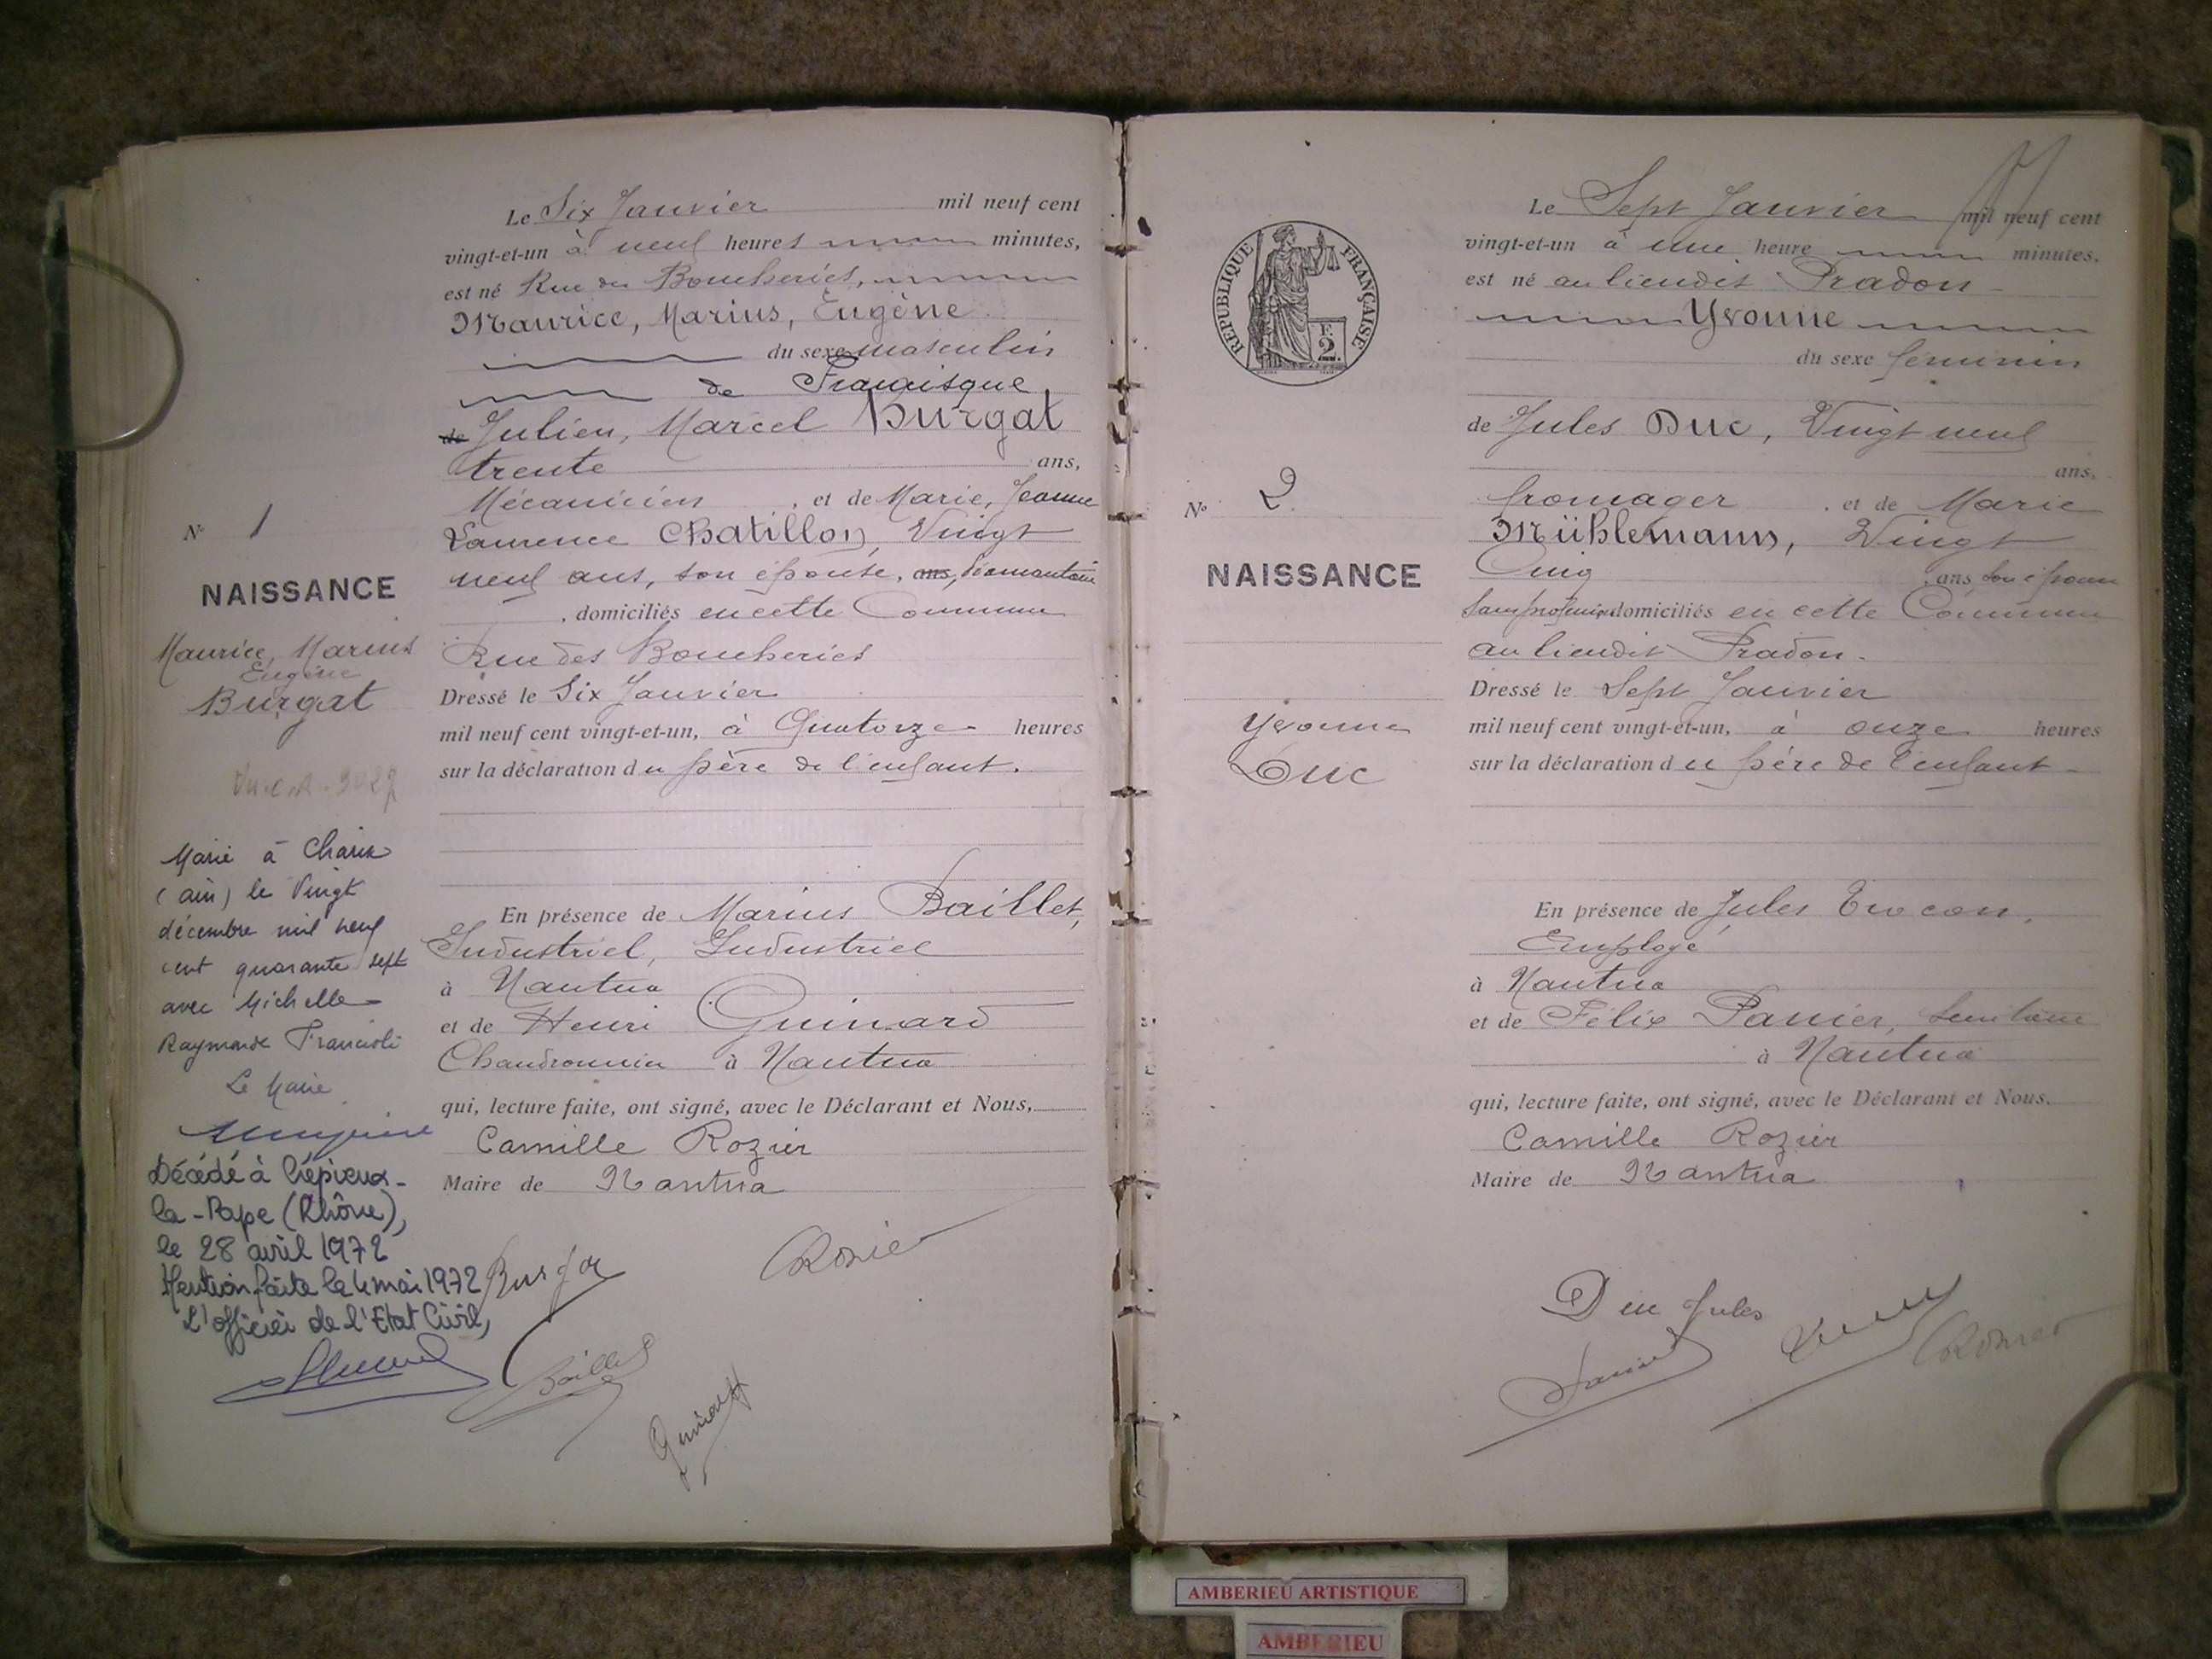 Le Six Janvier mil neuf cent
vingt-et-un à neuf heures minutes,
est né Rue des Boucheries,
Maurice, Marius, Eugène
du sexe masculin
de Francisque
de Julien, Marcel Burgat
trente ans,
Mécanicien, et de Marie, Jeanne
Laurence Chatillon, Vingt
neuf ans, son épouse, ans, diamantaire
, domiciliés en cette Commune
Rue des Boucheries
Dressé le Six Janvier
mil neuf cent vingt-et-un, à Quatorze heures
sur la déclaration du père de l'enfant.
En présence de Marius Baillet,
Industriel, Industriel
à Nantua
et de Henri Guinard
Chaudronnier à Nantua
qui, lecture faite, ont signé, avec le Déclarant et Nous,
Camille Rozier
Maire de Nantua
Rozier
Baillet
Guinard
No 1
NAISSANCE
Maurice, Marius
Eugène
Burgat
Marié à Charix
(ain) le Vingt
décembre mil neuf
cent quarante sept
avec Michelle
Raymonde Francioli
Le Maire
Décédé à Crépieux-
la-Pape (Rhône),
le 28 avril 1972
Mention faite le 4 mai 1972
L'officier de l'Etat Civil,
REPUBLIQUE FRANÇAISE
2
Le Sept Janvier mil neuf cent
vingt-et-un à une heure minutes.
est né au lieudit Pradon
Yvonne
du sexe féminin
de Jules Duc, Vingt neuf
ans,
fromager, et de Marie
Mühlemann, Vingt
Cinq ans son épouse
sans profession, domiciliés en cette Commune
au lieudit Pradon.
Dressé le Sept Janvier
mil neuf cent vingt-et-un, à onze heures
sur la déclaration du père de l'enfant
En présence de Jules
Employé
à Nantua
et de Félix Panier, Secrétaire
à Nantua
qui, lecture faite, ont signé, avec le Déclarant et Nous.
Camille Rozier
Maire de Nantua
Duc Jules
Panier
Rozier
No 2
NAISSANCE
Yvonne
Duc
AMBERIEU ARTISTIQUE
AMBERIEU